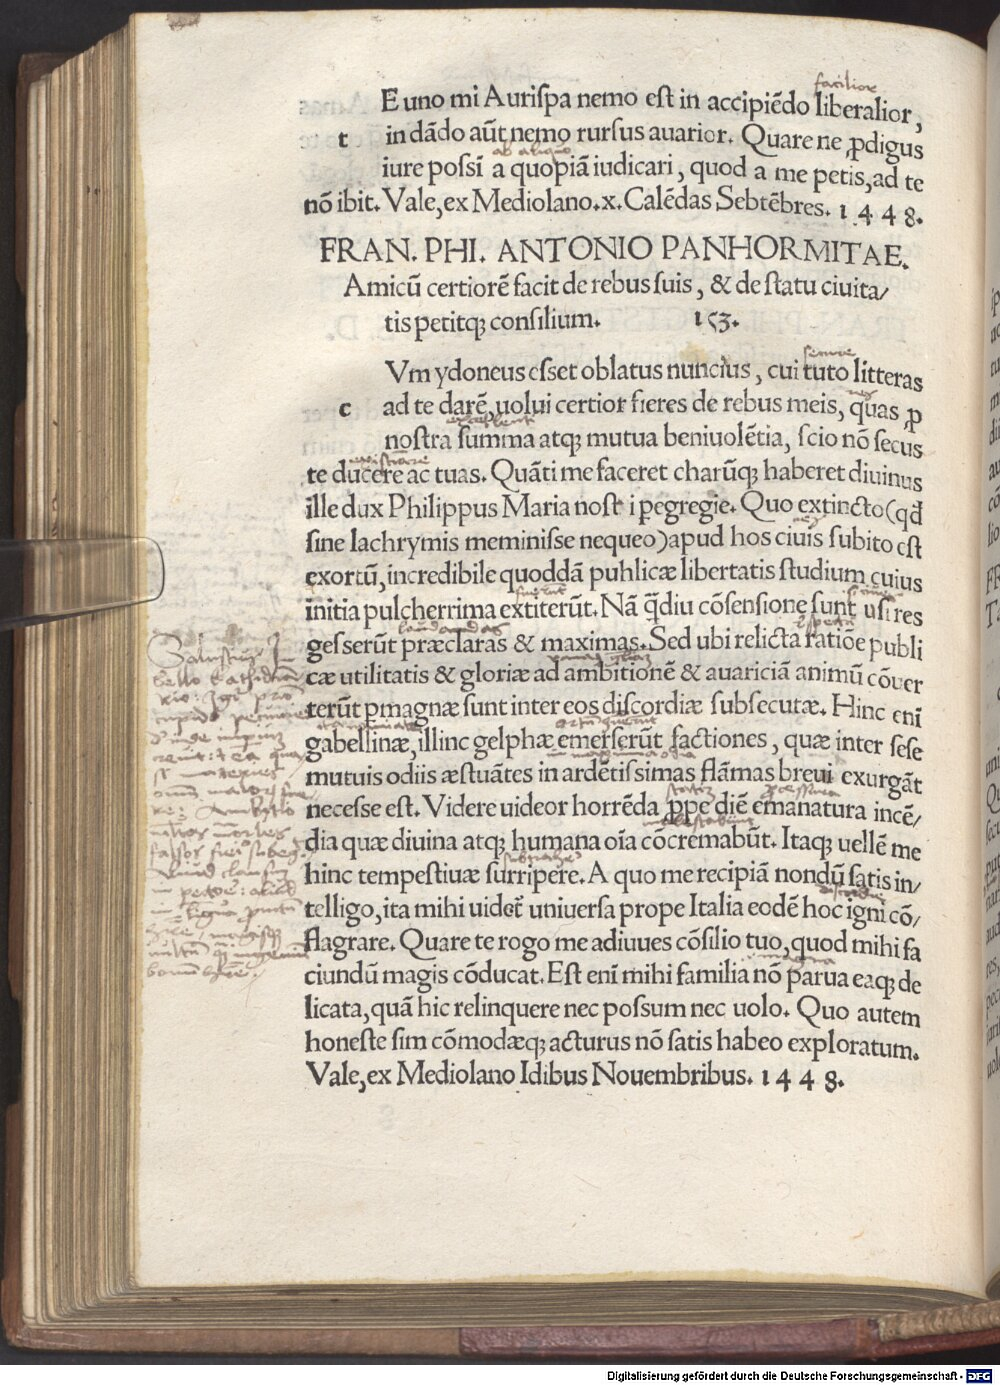 facilior
E uno mi Auriſpa nemo eſt in accipiēdo liberalior,
t in dādo aūt nemo rurſus auarior. Quare ne ꝓdigus
ab aliquo
iure poſſī a quopiā iudicari, quod a me petis, ad te
nō ibit. Vale, ex Mediolano. x. Calēdas Sebtēbres. 1448.
FRAN. PHI. ANTONIO PANHORMITAE.
Amicū certiorē facit de rebus ſuis, & de ſtatu ciuita/
tis petitqꝫ conſilium. 153.
ſecure
Vm ydoneus eſſet oblatus nuncius, cui tuto litteras
c ad te darē, uolui certior fieres de rebus meis, quas ꝓ
noſtra ſumma atqꝫ mutua beniuolētia, ſcio nō ſecus
te ducere ac tuas. Quāti me faceret charūqꝫ haberet diuinus
ille dux Philippus Maria noſt i ꝑegregie. Quo extincto (qđ
ſine lachrymis meminiſſe nequeo) apud hos ciuis ſubito eſt
exortū, incredibile quoddā puhlicæ libertatis ſtudium cuius
fuerunt
initia pulcherrima extiterūt. Nā q̄diu cōſenſione ſunt uſi res
laudandas
geſſerūt præclaras & maximas. Sed ubi relicta ratiōe publi
cæ utilitatis & gloriæ ad ambitionē & auariciā animū cōuer
terūt ꝑmagnæ ſunt inter eos diſcordiæ ſubſecutæ. Hinc enī
gabellinæ, illinc gelphæ emerſerūt factiones, quæ inter ſeſe
in magna odia
mutuis odiis æſtuātes in ardētiſſimas flāmas breui exurgāt
neceſſe eſt. Videre uideor horrēda ꝓpe diē emanatura incē/
dia quæ diuina atqꝫ humana oīa cōcremabūt. Itaqꝫ uellē me
ſubtrahere
hinc tempeſtiuæ ſurripere. A quo me recipiā nondū ſatis in/
diſcordie
telligo, ita mihi uidet̄ uniuerſa prope Italia eodē hoc igni cō/
flagrare. Quare te rogo me adiuues cōſilio tuo, quod mihi fa
magna
ciundū magis cōducat. Eſt enī mihi familia nō parua eaqꝫ de
licata, quā hic relinquere nec poſſum nec uolo. Quo autem
honeſte ſim cōmodæqꝫ acturus nō ſatis habeo exploratum.
Vale, ex Mediolano Idibus Nouembribus. 1448.
Digitalisierung gefördert durch die Deutsche Forschungsgemeinschaft - DFG